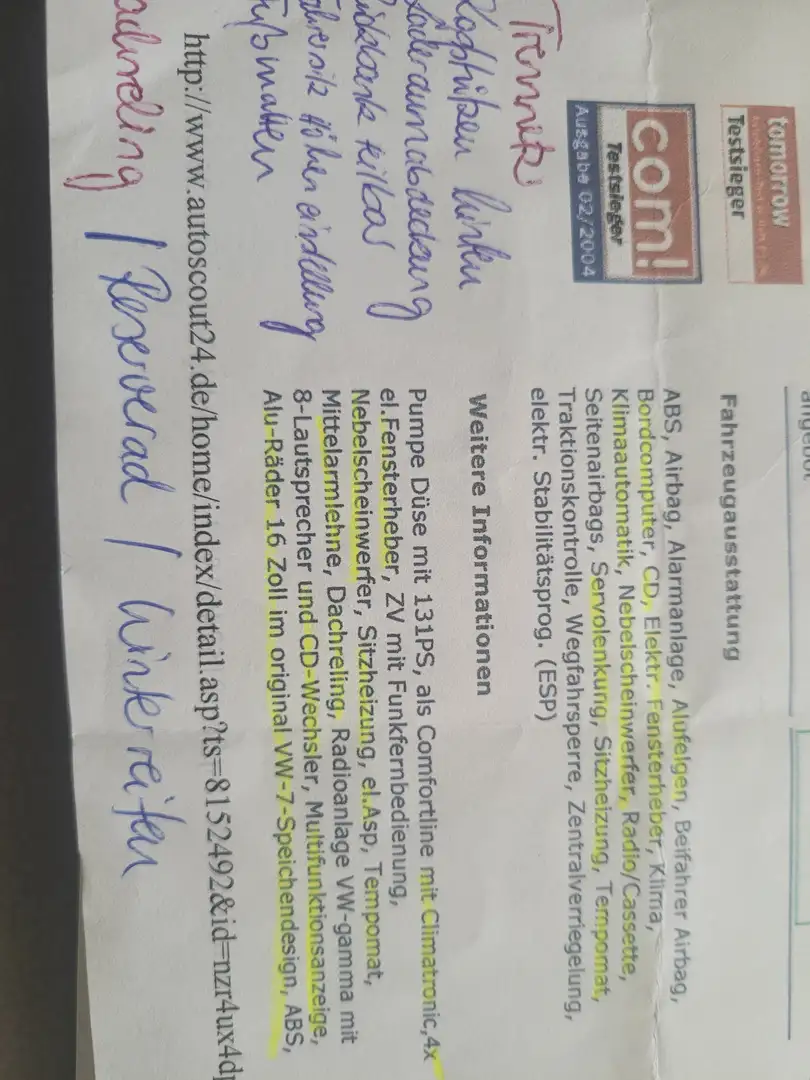 tomorrow
Testsieger
com!
Testsieger
Ausgabe 02/2004
Fahrzeugausstattung
ABS, Airbag, Alarmanlage, Alufelgen, Beifahrer Airbag,
Bordcomputer, CD, Elektr. Fensterheber, Klima,
Klimaautomatik, Nebelscheinwerfer, Radio/Cassette,
Seitenairbags, Servolenkung, Sitzheizung, Tempomat,
Traktionskontrolle, Wegfahrsperre, Zentralverriegelung,
elektr. Stabilitätsprog. (ESP)
Weitere Informationen
Pumpe Düse mit 131PS, als Comfortline mit Climatronic,4x
el.Fensterheber, ZV mit Funkfernbedienung,
Nebelscheinwerfer, Sitzheizung, el.Asp, Tempomat,
Mittelarmlehne, Dachreling, Radioanlage VW-gamma mit
8-Lautsprecher und CD-Wechsler, Multifunktionsanzeige,
Alu-Räder 16 Zoll im original VW-7-Speichendesign, ABS,
Kopfstützen hinten
Laderaumabdeckung
Rückbank teilbar
höheneinstellung
Fußmatten
http://www.autoscout24.de/home/index/detail.asp?ts=8152492&id=nzr4ux4d
achreling / Reserverad / Winterreifen